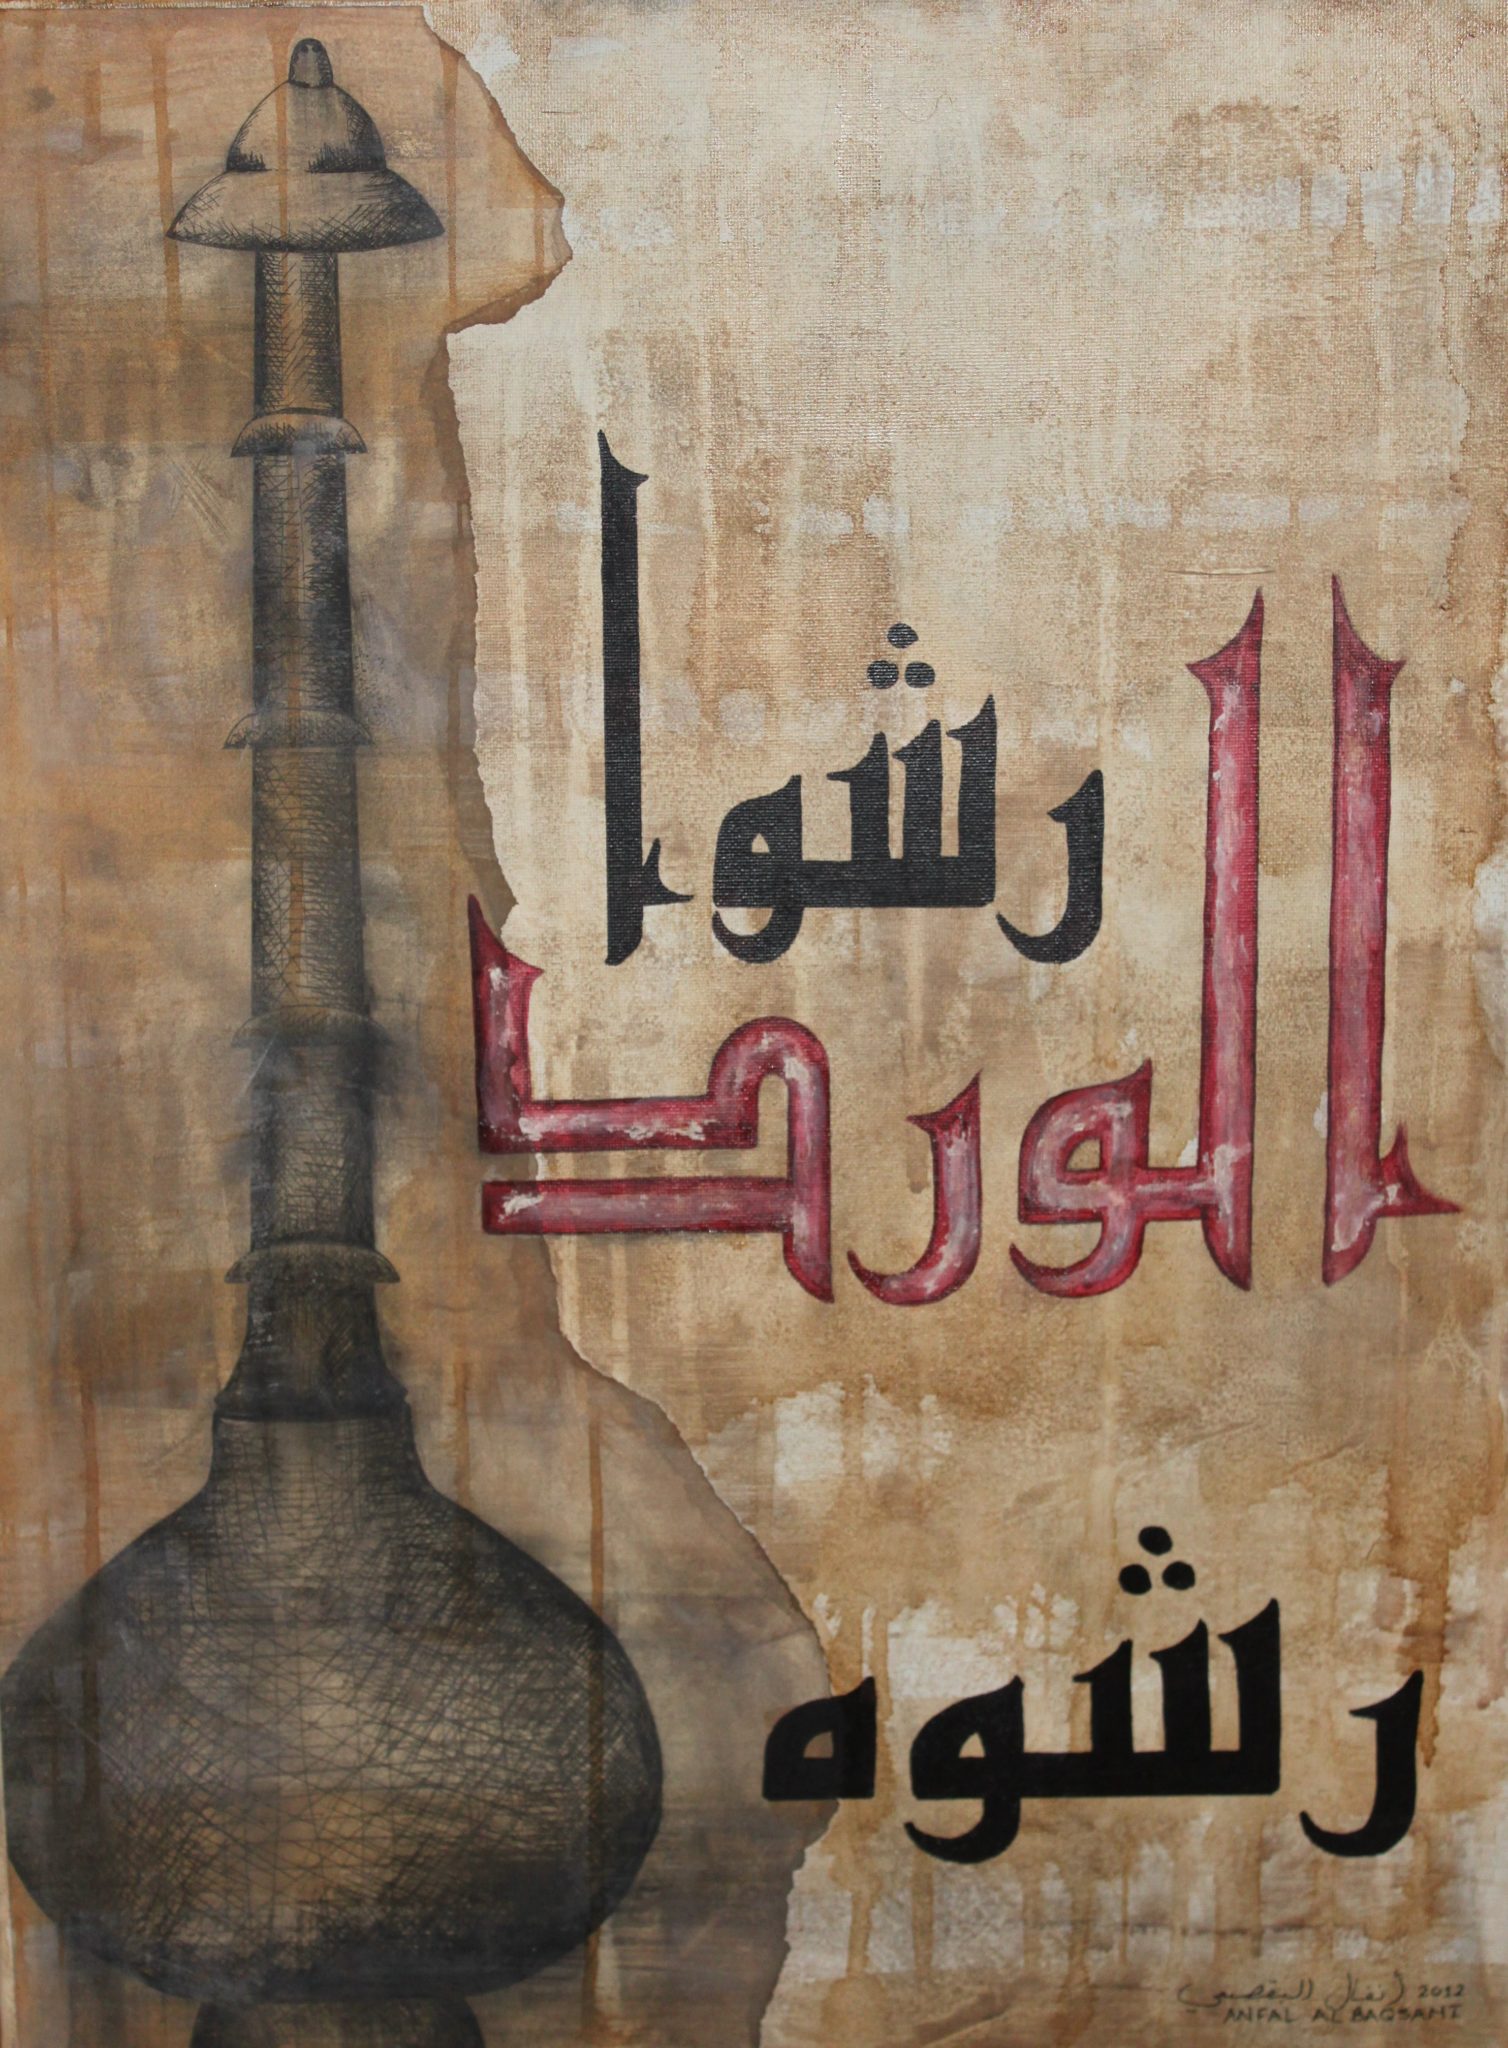 رشوا
الورد
رشوه
أنفال البقصمي 2012
ANFAL ALBAQSAMI